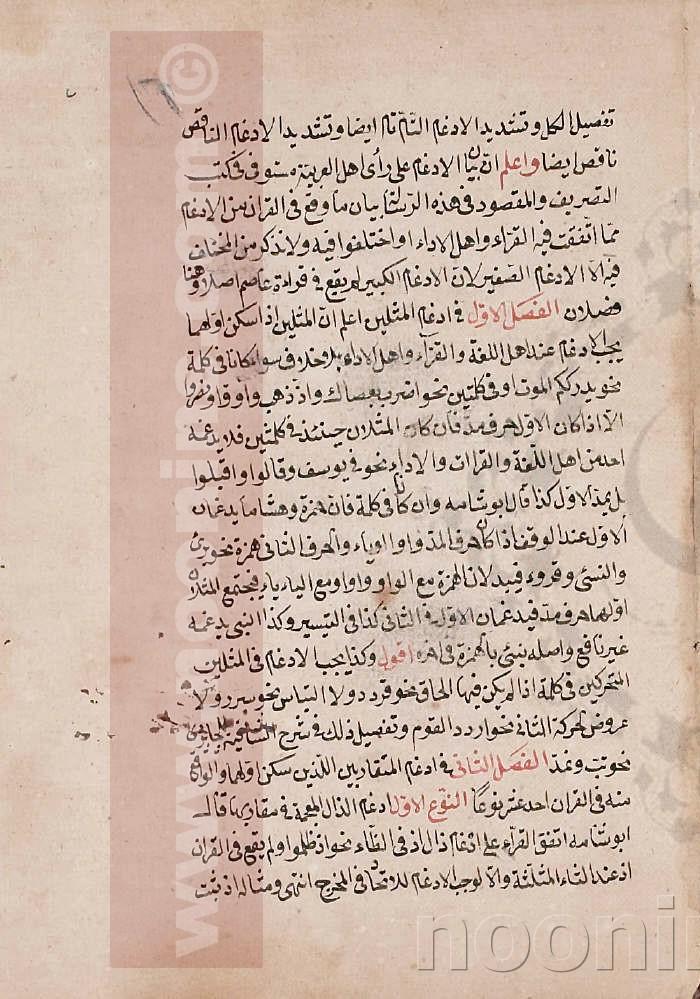 ١٦
تفصيل الكل وتشديد الادغام التام تام ايضا وتشديد الادغام الناقص
ناقص ايضا واعلم ان بيان الادغام على رأى اهل العربية مستوفى فى كتب
التصريف والمقصود فى هذه الرسالة بيان ما وقع فى القران من الادغام
مما اتفقت فيه القراء واهل الاداء او اختلفوا فيه ولا نذكر من المختلف
فيه الا الادغام الصغير لان الادغام الكبير لم يقع فى قراءة عاصم اصلا وهنا
فصلان الفصل الاول فى ادغام المثلين اعلم ان المثلين اذا سكن اولهما
يجب الادغام عند اهل اللغة والقراء واهل الاداء بلا خلاف سواء كانا فى كلمة
نحو يدرككم الموت او فى كلمتين نحو اضرب بعصاك واذ ذهب واوقا ونصروا
الا اذا كان الاول حرف مد فان كان المثلان حينئذ فى كلمتين فلا يدغمه
احد من اهل اللغة والقراات والاداء نحو فى يوسف وقالوا واقبلوا
بل يمد الاول كذا قال ابو شامه وان كانا فى كلمة فان حمزة وهشاما يدغمان
الاول عند الوقف اذا كان حرف المد واوا او ياء والحرف الثانى همزة نحو برئ
والنسئ وقروء فيبدلان الهمزة مع الواو واوا ومع الياء ياء فيجتمع المثلان
اولهما حرف مد فيدغمان الاول فى الثانى كذا فى التيسير وكذا النبى يدغمه
غير نافع واصله نبئ بالهمزة فى اخره اقول وكذا يجب الادغام فى المثلين
المتحركين فى كلمة اذا لم يكن فيها الحاق نحو قردد ولا التباس نحو سرر ولا
عروض لحركة الثانى نحو اردد القوم وتفصيل ذلك فى شرح الشافية للجاربردى
نحو تب ومد الفصل الثانى فى ادغام المتقاربين اللذين سكن اولهما والواقع
منه فى القران احد عشر نوعا النوع الاول ادغام الذال المعجمة فى مقاربها قال
ابو شامه اتفق القراء على ادغام ذال اذ فى الظاء نحو اذ ظلموا ولم يقع فى القران
اذ عند الثاء المثلثة والا لوجب الادغام للاتحاد فى المخرج انتهى ومثاله اذ ثبت
www.noonim.com ©
nooni